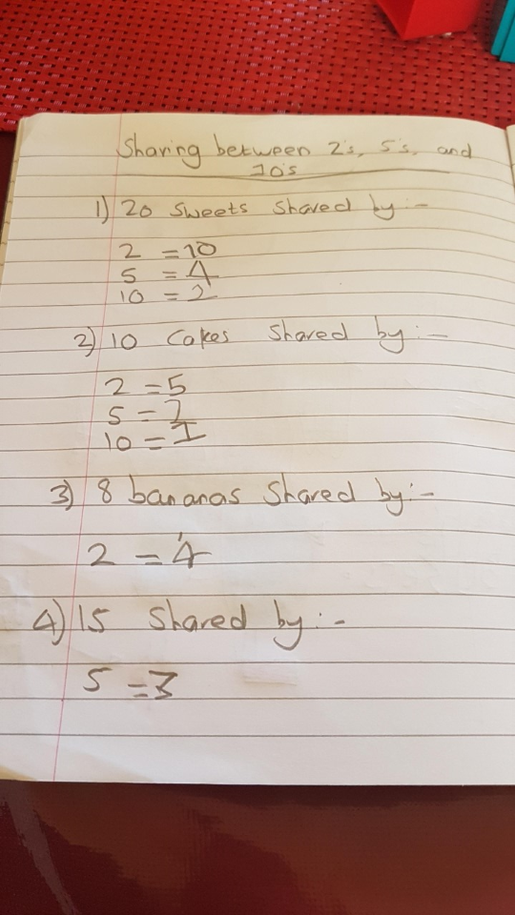 Sharing between 2's, 5's, and
10's
1) 20 Sweets Shared by:-
2 = 10
5 = 4
10 = 2
2) 10 Cakes Shared by:-
2 = 5
5 = 2
10 = 1
3) 8 bananas Shared by:-
2 = 4
4) 15 Shared by:-
5 = 3